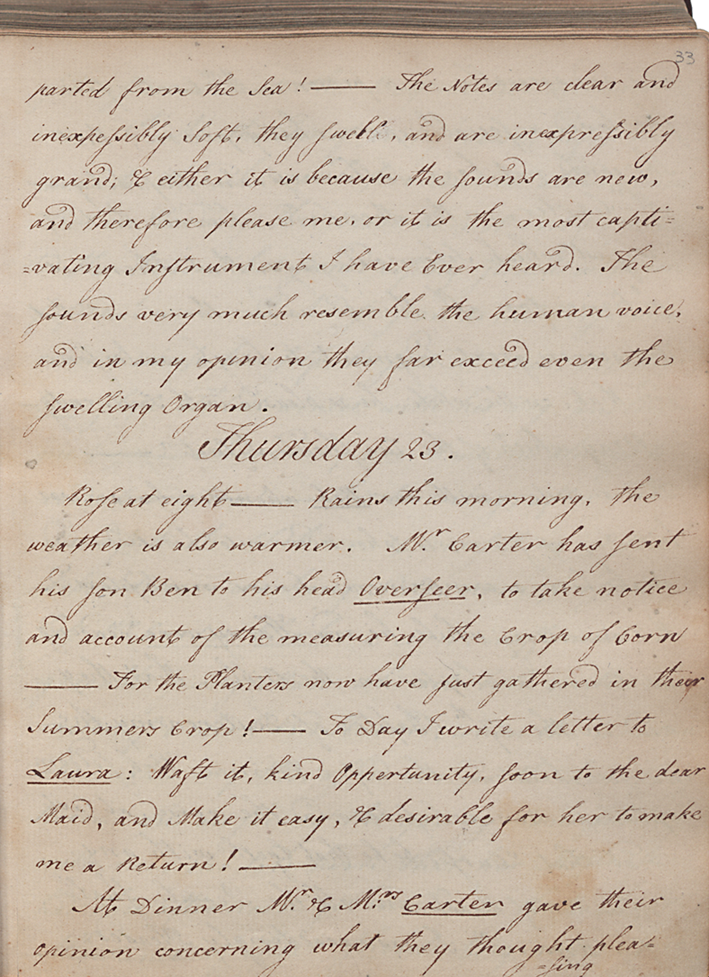 33
parted from the Sea! —— The Notes are clear and
inexpeſsibly Soft, they ſwell, and are inexpreſsibly
grand; & either it is because the ſounds are new,
and therefore please me, or it is the most capti=
=vating Inſtrument I have Ever heard. The
ſounds very much resemble the human voice,
and in my opinion they far exceed even the
ſwelling Organ.
Thursday 23.
Roſe at eight —— Rains this morning, the
weather is also warmer. Mr. Carter has ſent
his ſon Ben to his head Overſeer, to take notice
and account of the measuring the Crop of Corn
—— For the Planters now have just gathered in their
Summers Crop! —— To Day I write a letter to
Laura: Waft it, kind Oppertunity, ſoon to the dear
Maid, and Make it easy, & desirable for her to make
me a Return! ——
At Dinner Mr. & Mrs. Carter gave their
opinion concerning what they thought plea=
=sing